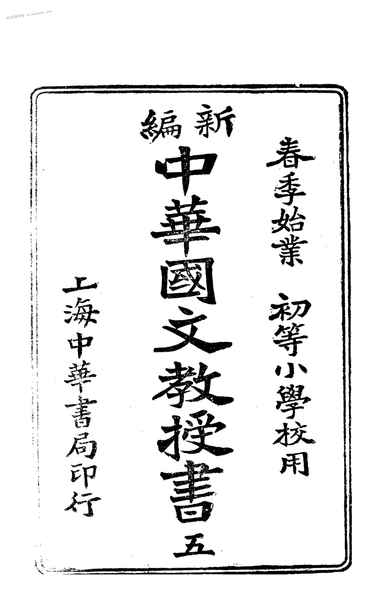 春季始業 初等小學校用
新編
中華國文教授書 五
上海中華書局印行